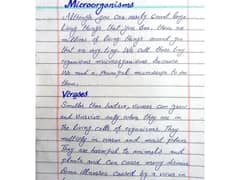 Microorganisms
Although you can easily count large
living things that you see, there are
millions of living things around you
that are very tiny. We call these tiny
organisms microorganisms because
We need a powerful microscope to see
them.
Viruses
Smaller than bacteria, viruses can grow
and survive only when they are in
the living cells of organisms. They
multiply in warm and moist places
They are harmful to animals and
plants and can cause many diseases
Some illnesses caused by a virus in